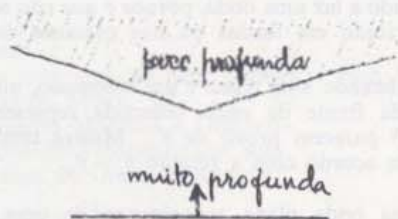 parec. profunda
muito profunda